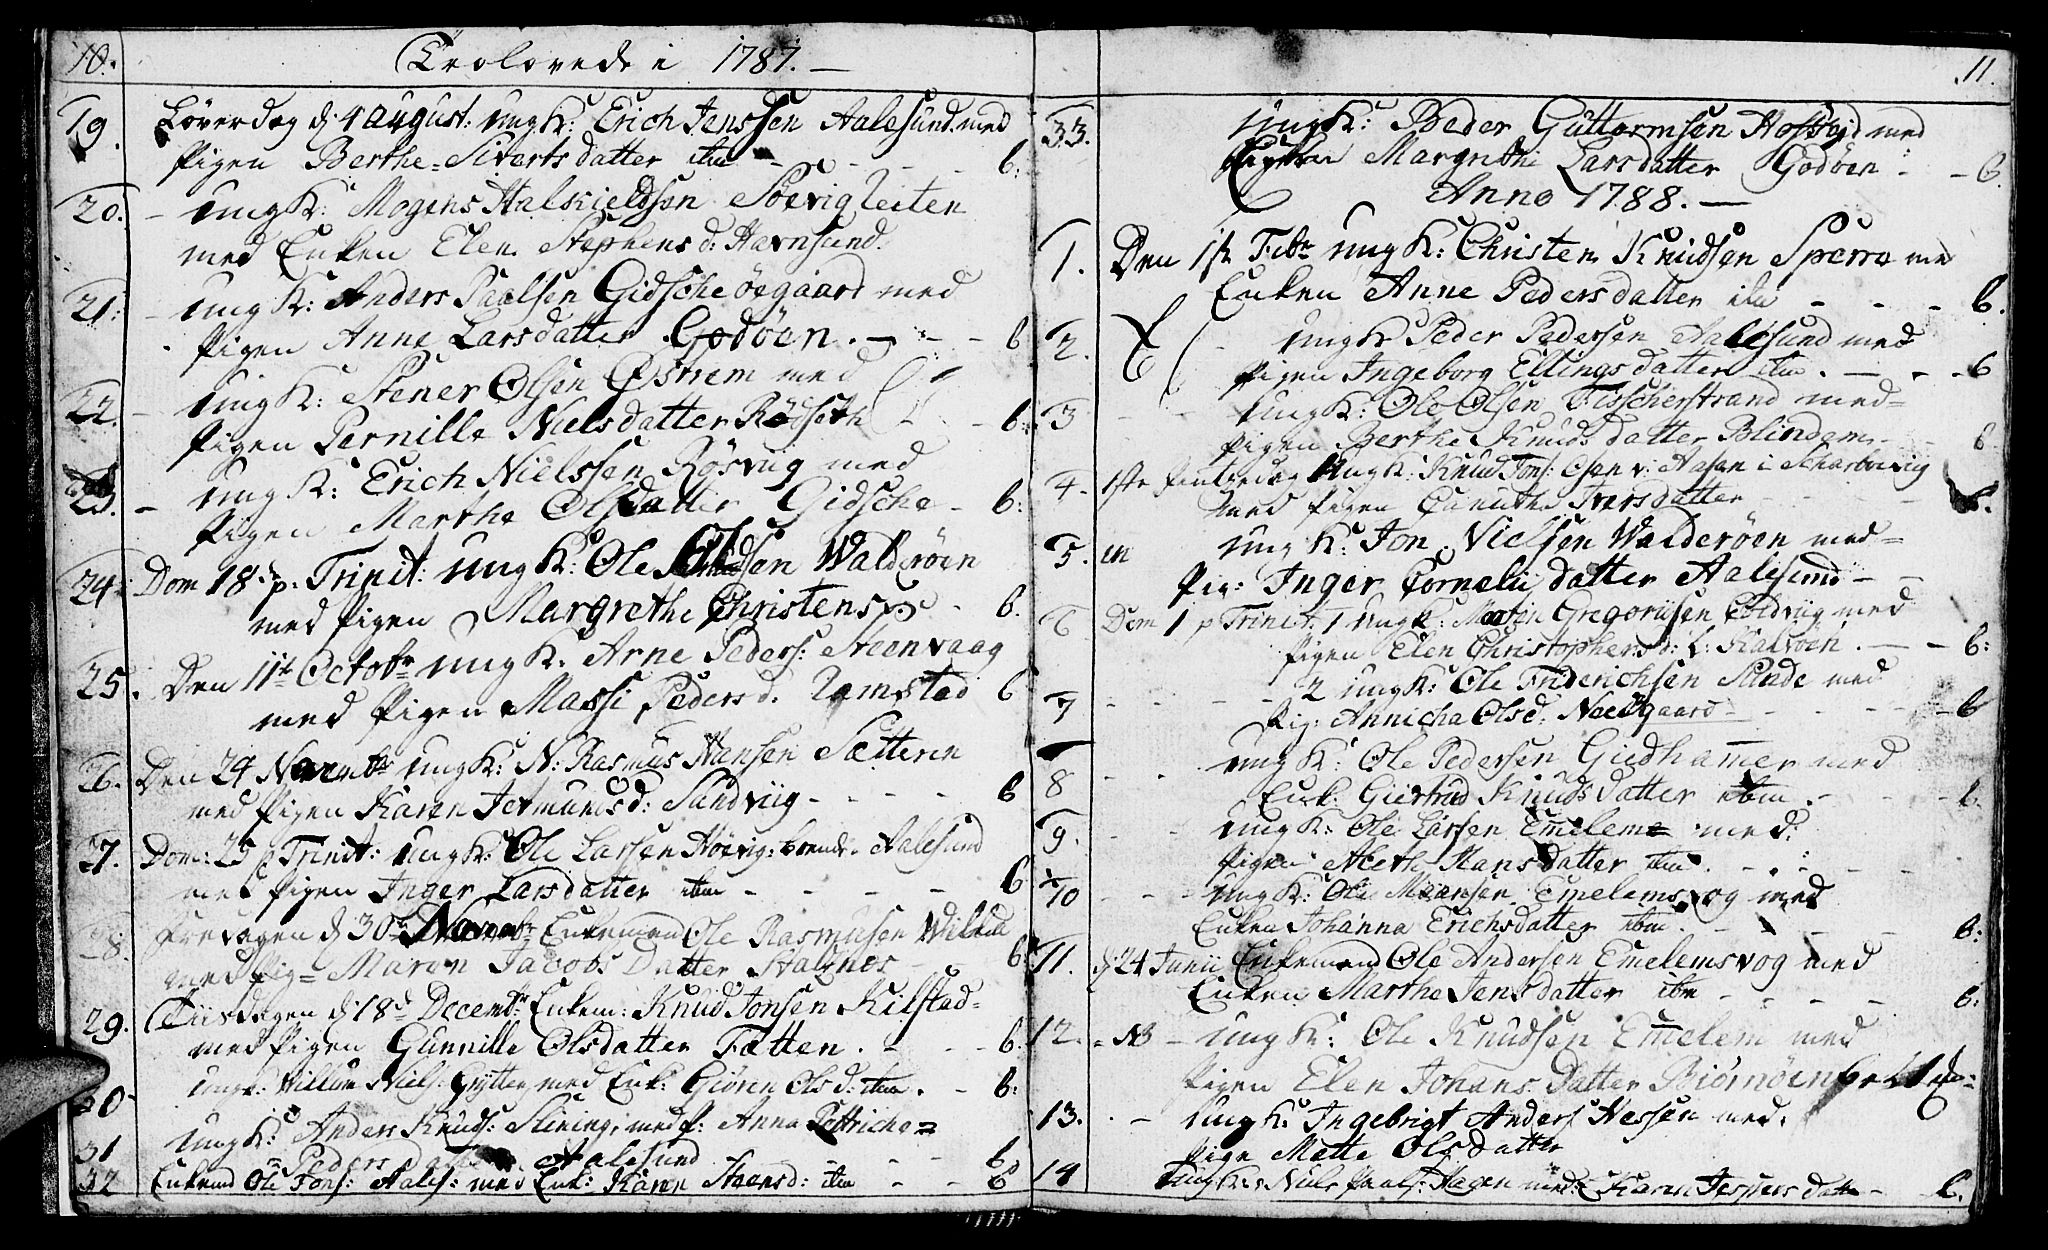 10.
Trolovede i 1787. —
19. Løverdag d: 4 august: ungK: Erich Jenssen Aalesund med
Pigen Berthe Siverts datter ibm - - - b:
20. - ungK: Mogens Halskieldsen Søevigleiten
med Enken Elen Stephens d: Havnsund.
21: - ungK: Anders Paalsen Gidsche øegaard med
Pigen Anne Larsdatter Godøen. - - - b
22. - ungK: Stener Olsen Østrem med
Pigen Pernille Nielsdatter Rødseth - - b:
23. - ungK: Erich Nielssen Røsvig med
Pigen Marthe Olsdatter Gidsche - b:
24. Dom 18. p. Trinit: ungK: Ole Olsen Walderøen
med Pigen Margrethe Christens - b.
25. Den 11te Octobr ungK. Arne Peders: Steenvaag
med Pigen Massi Peders d. Ramstad b
6. Den 24 Novembr ungK: N: Rasmus Hansen Sætteren
med Pigen Karen Jetmundsd: Sandviig - - - - b
27. Dom: 25 p Trinit: ungK: Ole Larsen Høevig: boende Aalesund
med Pigen Inger Larsdatter ibm - - - - b
28. Fredagen d 30te Novembr Enkemand Ole Rasmusen
med Pig= Maren Jacobs Datter Stalenes b
29. Tiisdagen d: 18d Decembr Enkem: Knud Jonsen Kilstad=
med Pigen Gunnille Olsdatter Tætten. - - - b.
30 ungk: Willum Niels: Gytter, med Enk: Giøren Ols d: ibm. - b:
31 ungK: Anders Knuds: Slining, med P: Anna
Peders datter Aalesund - - b
32 Enkemd Ole Jons: Aales: med Enk: Karen Steensd: ibm - - b
11.
33. ungK: Peder Guttormsen med
Margrethe Larsdatter Godøen - - b.
Anno 1788. —
1. Den 1st Febr ungK: Christen Knudsen Sperre med
Enken Anne Pedersdatter ibm - - - b.
2. ungK Peder Pedersen Aalesund med
Pigen Ingeborg Ellings datter ibm. - - - b
3 - - ungK: Ole Olsen Fisscherstrand med=
Pigen Berthe Knuds datter Blindem - - b
4. 1ste Pintzedag ungK: Knud Jons: Osen v: Aasen i
med Pigen Iversdatter - - - b.
5. ungK: Jon Nielsen Walderøen med=
Pig: Inger Cornelii datter Aalesund - -
6 Dom 1 p Trinit. 1 ungK: Gregoriisen Eidviig med
Pigen Elen Christophersd: L: Kalvøen. - - b:
7 - - - - 2 ungK: Ole Friderichsen Sunde med
Pig: Annicha Olsd: Nedgaard - - - - b
8 - - ungK: Ole Pedersen Gudhamer med
Enk. Giertrud Knuds Datter ibm. - - b.
9. - - ungK: Ole Larsen Emelem= med:
Pigen Hansdatter ibm. - - - -
10 - - - ungK: Ole Emelemsvog med
Enken Johanna Erichsdatter ibm. - - - - b.
11. d 24 Junii Enkemand Ole Andersen Emelemsvog med
Enken Marthe Jensdatter ibm - - - - b.
12. - NB - ungK: Ole Knudsen Emelem med
Pigen Elen Johans Datter Biørnøen
13. - - ungK: Ingebrigt Anders Hessen med.
Pige Mette Olsdatter
14 ungK: Niels Paals: Hagen med Karen Jespers datter - b.